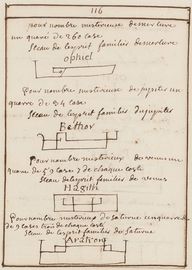 116
pour nombre misterieuse de mercure
un quare de 260 case
Sceau de lesprit familier de mercure
ophiel
Pour nombre misterieuse de jupiter un
quare de 34 case
Sceau de lesprit familier de jupiter
Bethor
Pour nombre misterieux de venus un
quare de 7 de chaque costé
Sceau de lesprit familier de venus
Hagith
Pour nombre misterieux de saturne
de 9 cases de chaque costé
Sceau de lesprit familier de saturne
Aratron